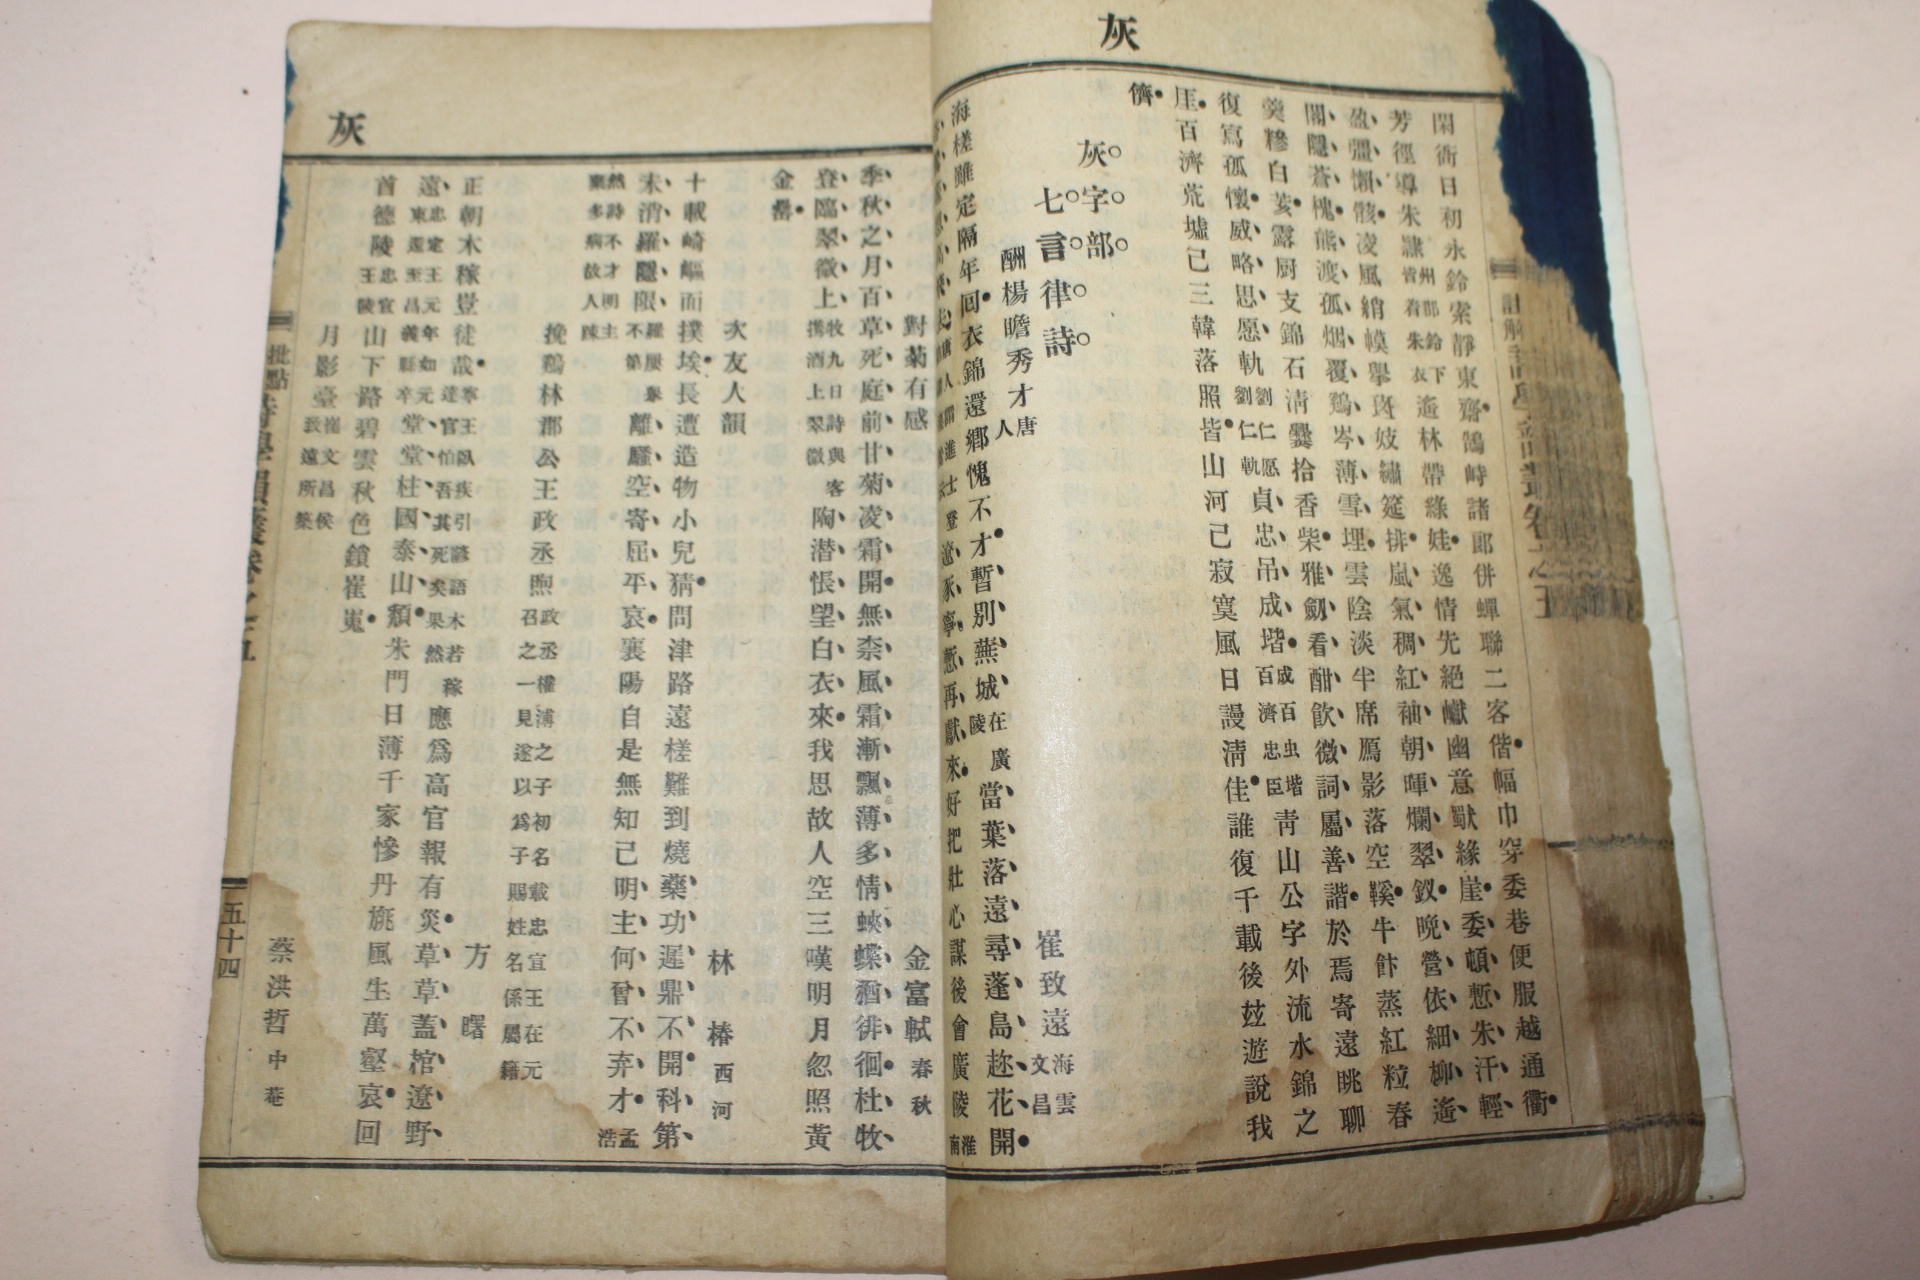 灰
閑衙日初永鈴索靜東齋鵠峙諸郎併蟬聯二客偕幅巾穿委巷便服越通衢
芳徑導朱隷州郎鈴下皆着朱衣遙林帶綠娃逸情先絕巘幽意獸緣崖委頓慙朱汗輕
盈彊懶骸凌風綃幙擧斑妓繡筵排嵐氣稠紅袖朝暉爛翠釵晩營依細柳遙
閣隱蒼槐熊渡孤烟覆鷄岑薄雪埋雲陰淡半席鴈影落空鞵牛飰蒸紅粒春
羹糝白荄露厨支錦石淸爨拾香柴雅劒看酣飮微詞屬善諧於焉寄遠眺聊
復寫孤懷威略思愿軌劉仁愿劉仁軌貞忠吊成堦成忠百濟忠臣靑山公字外流水錦之
厓百濟荒墟已三韓落照皆山河已寂寞風日謾淸佳誰復千載後玆遊說我
儕
灰字部
七言律詩
酬楊瞻秀才唐人
崔致遠海雲文昌
海槎雖定隔年回衣錦還鄕愧不才暫別蕪城在廣陵當葉落遠尋蓬島趂花開
再獻來好把壯心謀後會廣陵淮南
灰
對菊有感
金富軾春秋
季秋之月百草死庭前甘菊凌霜開無柰風霜漸飄薄多情蛺蝶猶徘徊杜牧
登臨翠微上牧九日詩與客携酒上翠微陶潜悵望白衣來我思故人空三嘆明月忽照黃
金罍
次友人韻
林椿西河
十載崎嶇面撲埃長遭造物小兒猜問津路遠槎難到燒藥功遲鼎不開科第
未消羅隱限羅屢擧不第離騷空寄屈平哀襄陽自是無知己明主何曾不弃才孟浩
然詩不才明主棄多病故人踈
挽鷄林郡公王政丞煦政丞權溥之子初名載忠宣王在元召之一見遂以爲子賜姓名係屬籍
方曙
正朝木稼豈徒哉寧王臥疾引諺語木若稼達官怕吾其死矣果然應爲高官報有災草草蓋棺遼野
遠忠定王元年如元東還至昌義縣卒堂堂柱國泰山頹朱門日薄千家慘丹旐風生萬壑哀回
首德陵忠宣王陵山下路碧雲秋色鎖崔嵬
月影臺崔文昌侯致遠所築
蔡洪哲中菴
批點
五十四